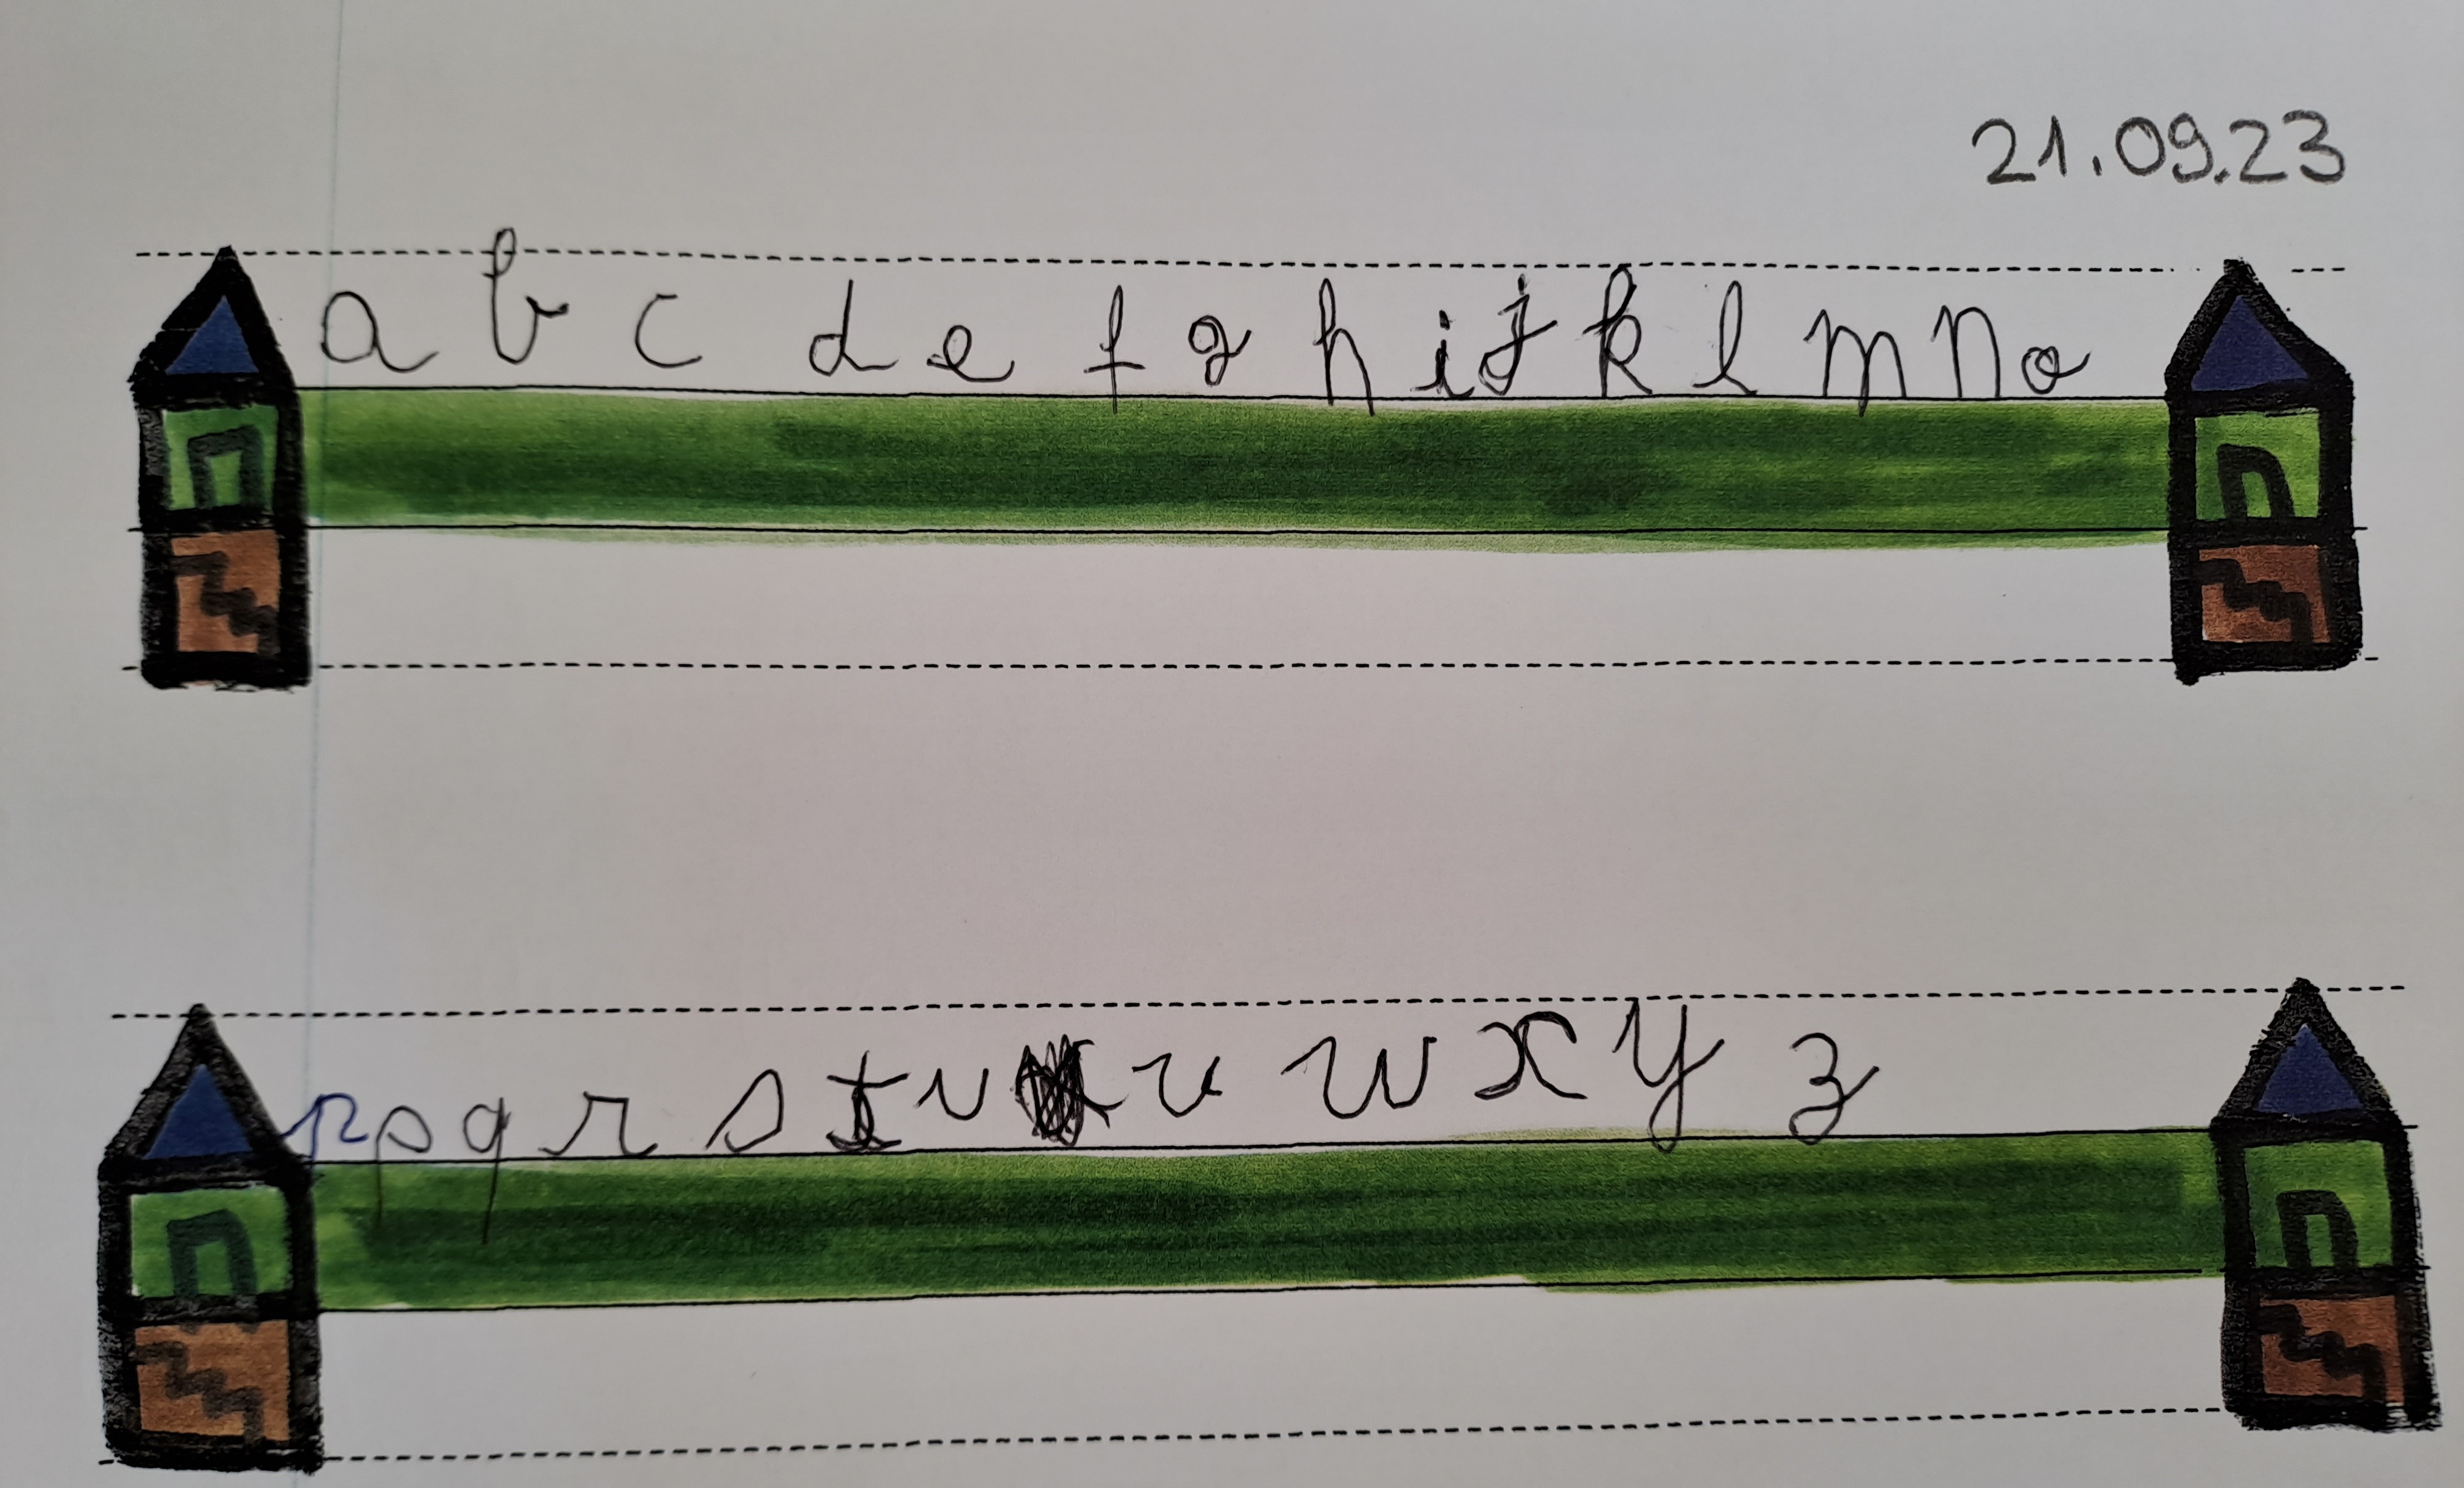 21.09.23
a b c d e f g h i j k l m n o
p p q r s t u v w x y z